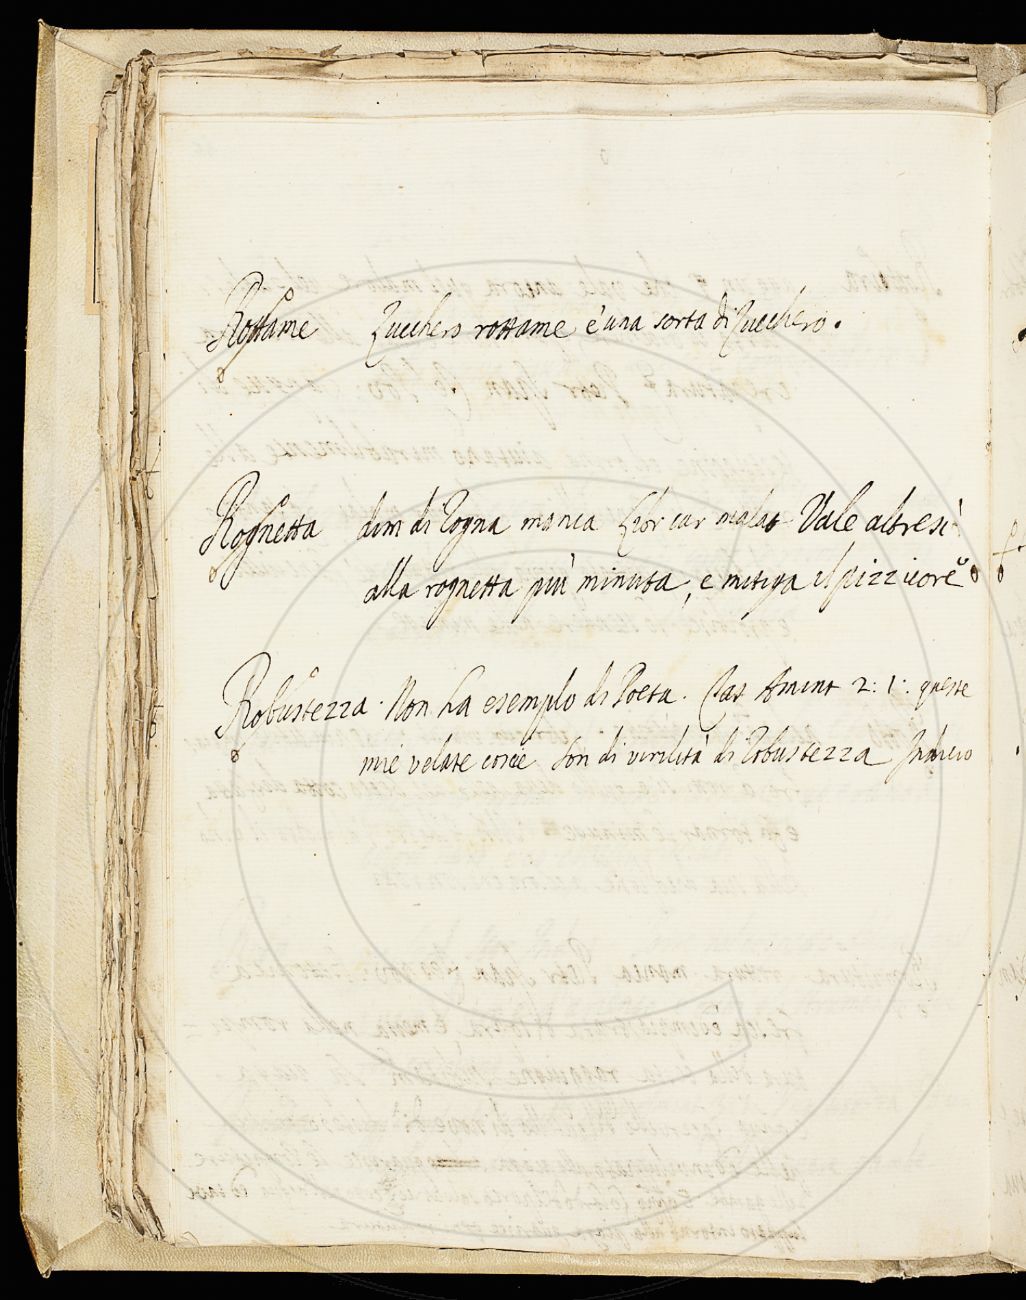 Rottame Zucchero rottame è una sorta di Zucchero.
Rognetta dim di Rogna manca Lior cur malat Vale altresì
alla rognetta più minuta, e mitiga il pizzicore
Robustezza. Non ha esempio di Poeta. Tas Amint 2: 1: queste
mie velate coscie Son di virilità di Robustezza Indicio